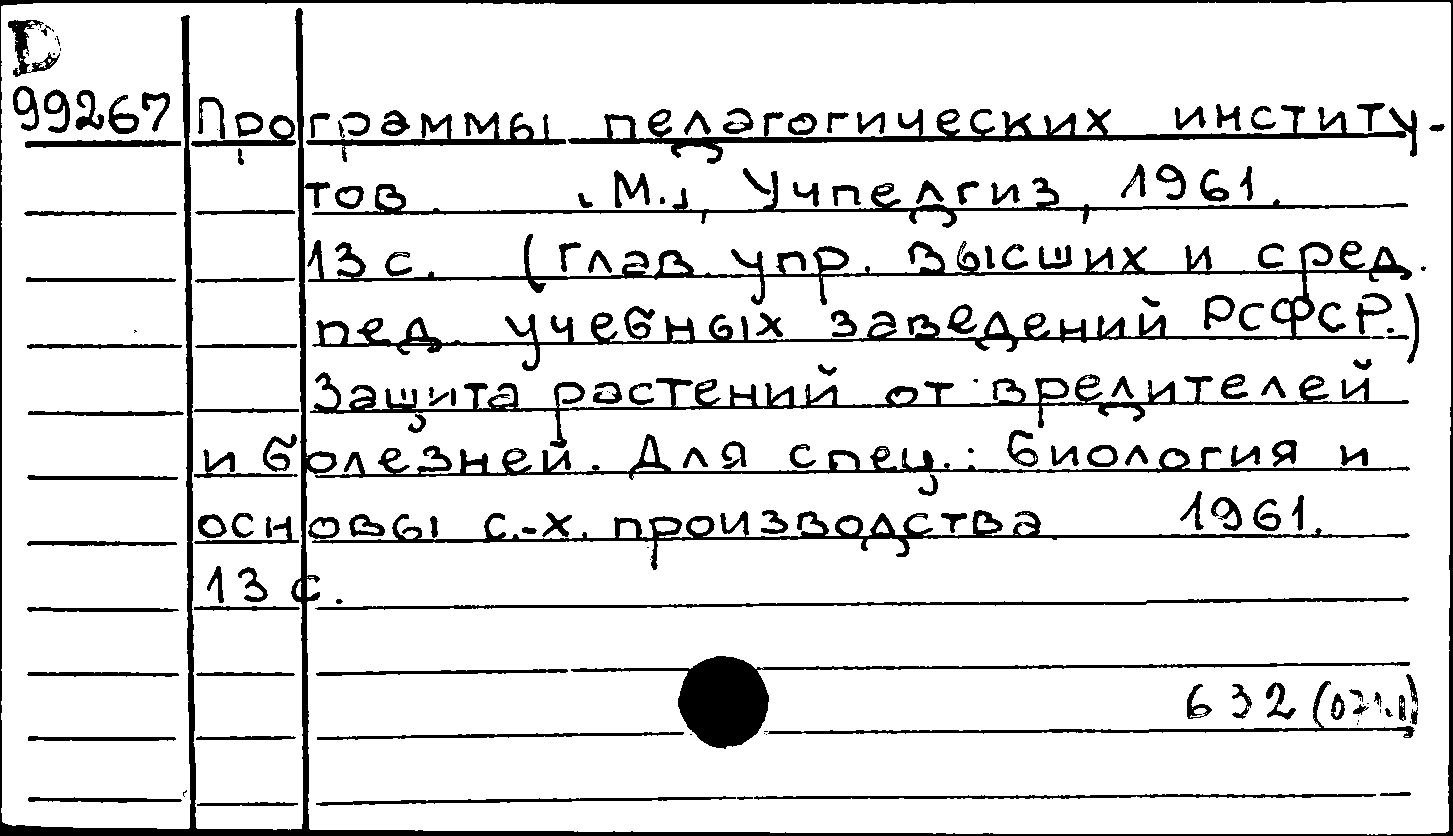 D
99267 Программы педагогических институ-
тов. [М.], Учпедгиз, 1961.
13 с. (Глав. упр. высших и сред.
пед. учебных заведений РСФСР.)
Защита растений от вредителей
и болезней. Для спец.: биология и
основы с.-х. производства. 1961.
13 с.
632 (071.1)